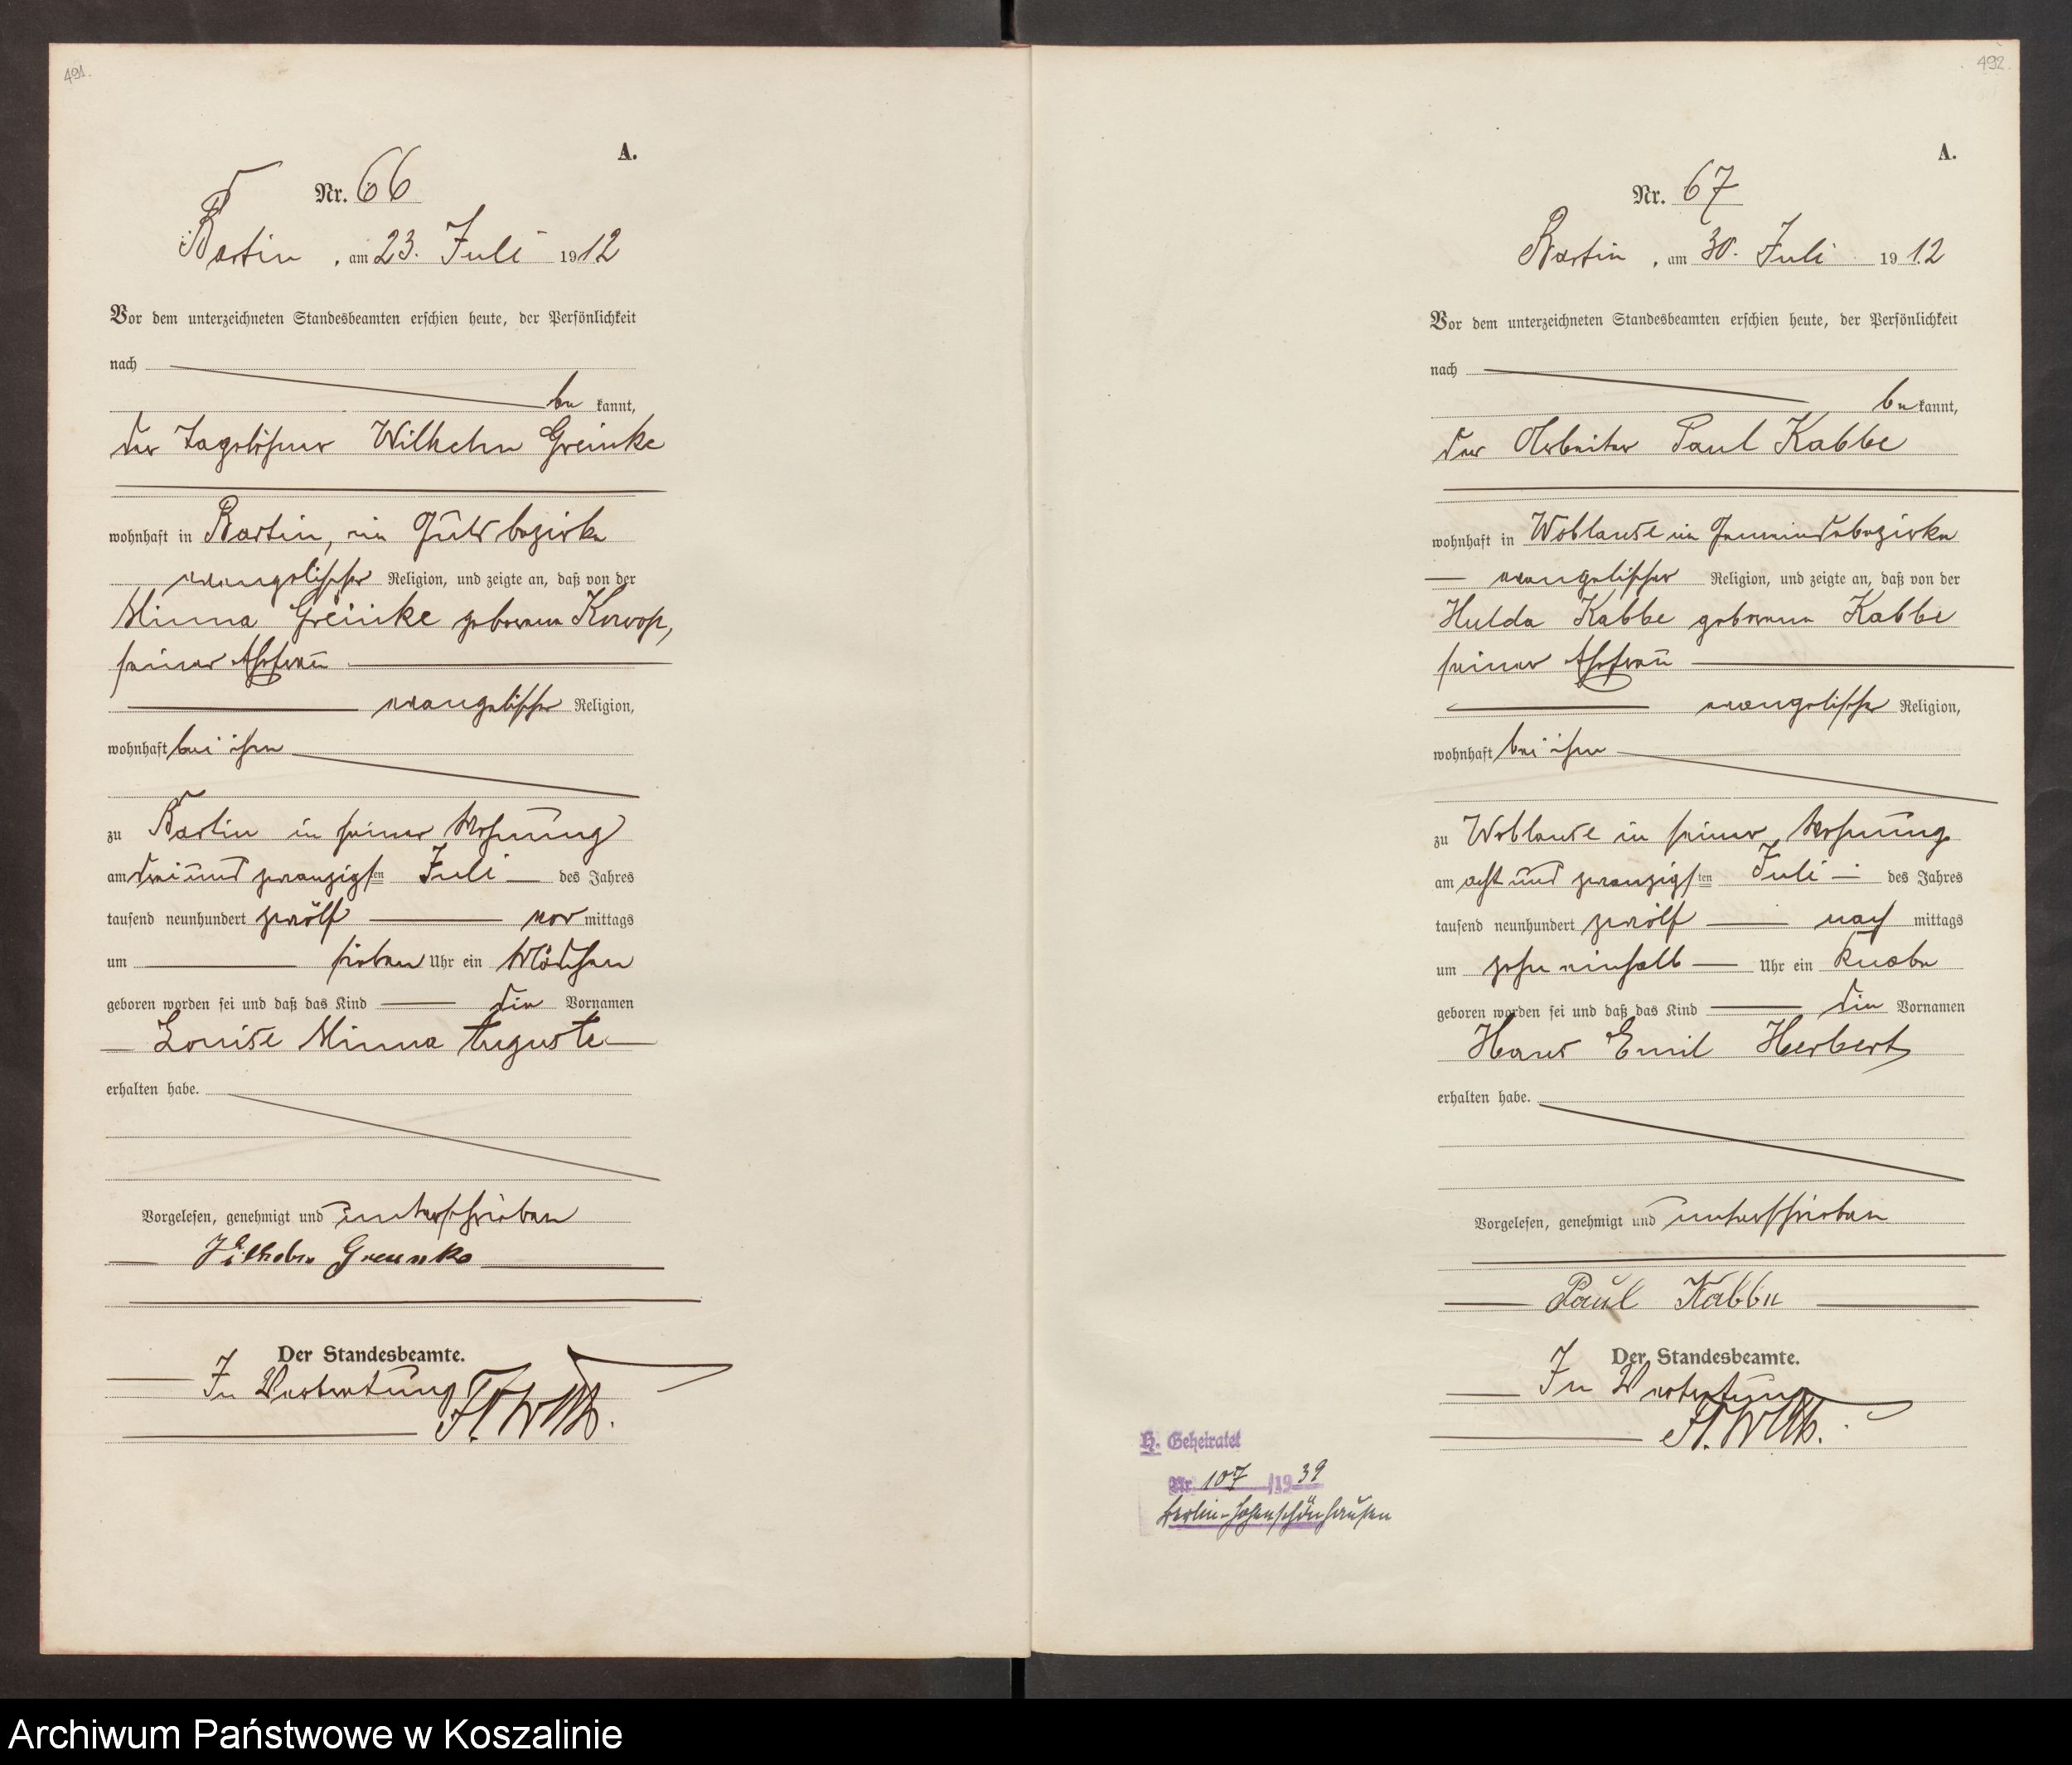 491.
A.
Nr. 66
Bartin, am 23. Juli 1912
Vor dem unterzeichneten Standesbeamten erschien heute, der Persönlichkeit
nach
be kannt,
der Tagelöhner Wilhelm Greinke
wohnhaft in Bartin, im Gutsbezirke
evangelischer Religion, und zeigte an, daß von der
Minna Greinke geborene
seiner Ehefrau
evangelischer Religion,
wohnhaft bei ihm
zu Bartin in seiner Wohnung
am drei und zwanzigsten Juli des Jahres
tausend neunhundert zwölf vor mittags
um sieben Uhr ein Mädchen
geboren worden sei und daß das Kind die Vornamen
Louise Minna Auguste
erhalten habe.
Vorgelesen, genehmigt und unterschrieben
Wilhelm Greinke
Der Standesbeamte.
In Vertretung
492.
A.
Nr. 67
Bartin, am 30. Juli 1912
Vor dem unterzeichneten Standesbeamten erschien heute, der Persönlichkeit
nach
be kannt,
der Arbeiter Paul Kabbe
wohnhaft in Woblanse im Gemeindebezirke
evangelischer Religion, und zeigte an, daß von der
Hulda Kabbe geborene Kabbe
seiner Ehefrau
evangelischer Religion,
wohnhaft bei ihm
zu Woblanse in seiner Wohnung
am acht und zwanzigsten Juli des Jahres
tausend neunhundert zwölf nach mittags
um zehn einhalb Uhr ein Knabe
geboren worden sei und daß das Kind die Vornamen
Hans Emil Herbert
erhalten habe.
Vorgelesen, genehmigt und unterschrieben
Paul Kabbe
Der Standesbeamte.
In Vertretung
H. Geheiratet
Nr. 107 /1939
Berlin-Hohenschönhausen
Archiwum Państwowe w Koszalinie